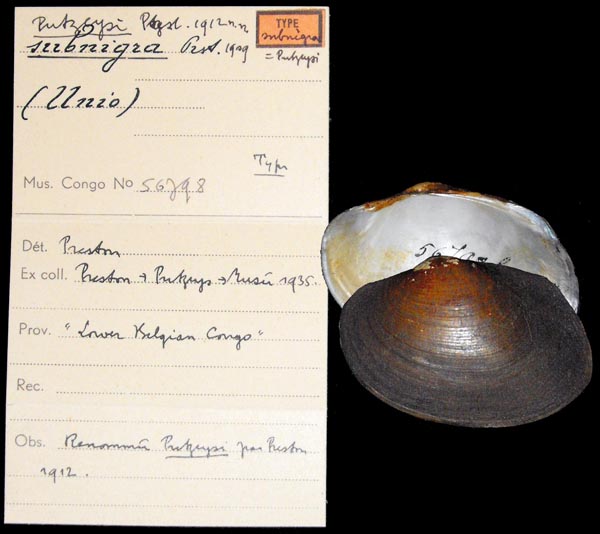 Putzeysi Pgst. 1912 n.n.
TYPE
subnigra
= Putzeysi
subnigra Prst. 1909
(Unio)
Type
Mus. Congo No 56798
Dét. Preston
Ex coll. Preston → Putzeys → Musée 1935.
Prov. "Lower Belgian Congo"
Rec.
Obs. Renommé Putzeysi par Preston
1912.